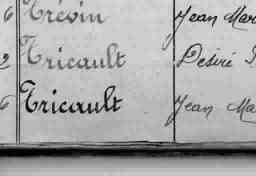 6 Trévin Jean Mar
2 Tricault Désiré
6 Tricault Jean Ma